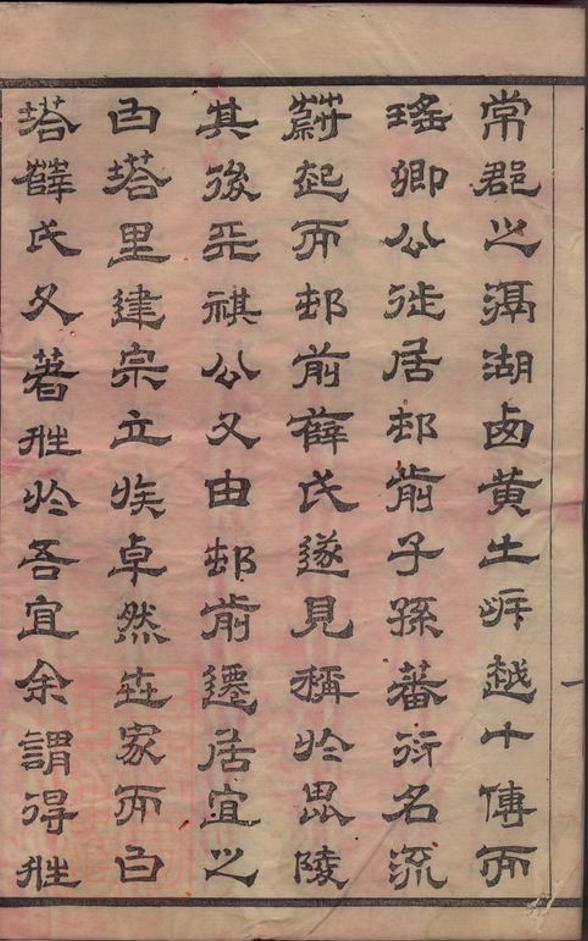 常郡之滆湖西黃土岸越十傳而
瑤卿公徙居邨前子孫蕃衍名流
蔚起而邨前薛氏遂見稱於毘陵
其後平祺公又由邨前遷居宜之
白塔里建宗立族卓然世家而白
塔薛氏又著姓於吾宜余謂得姓
一